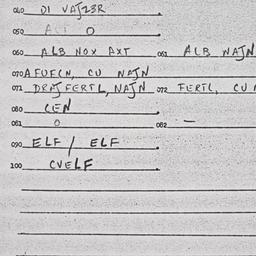 040 DI VAJZBR
050 ALI O
060 ALB NOX AXT 061 ALB NAJN
070 AFUFCN, CU NAJN
071 DRAJFERTL, NAJN 072 FERTL, CU
080 CEN
081 O 082 —
090 ELF / ELF
100 CVELF